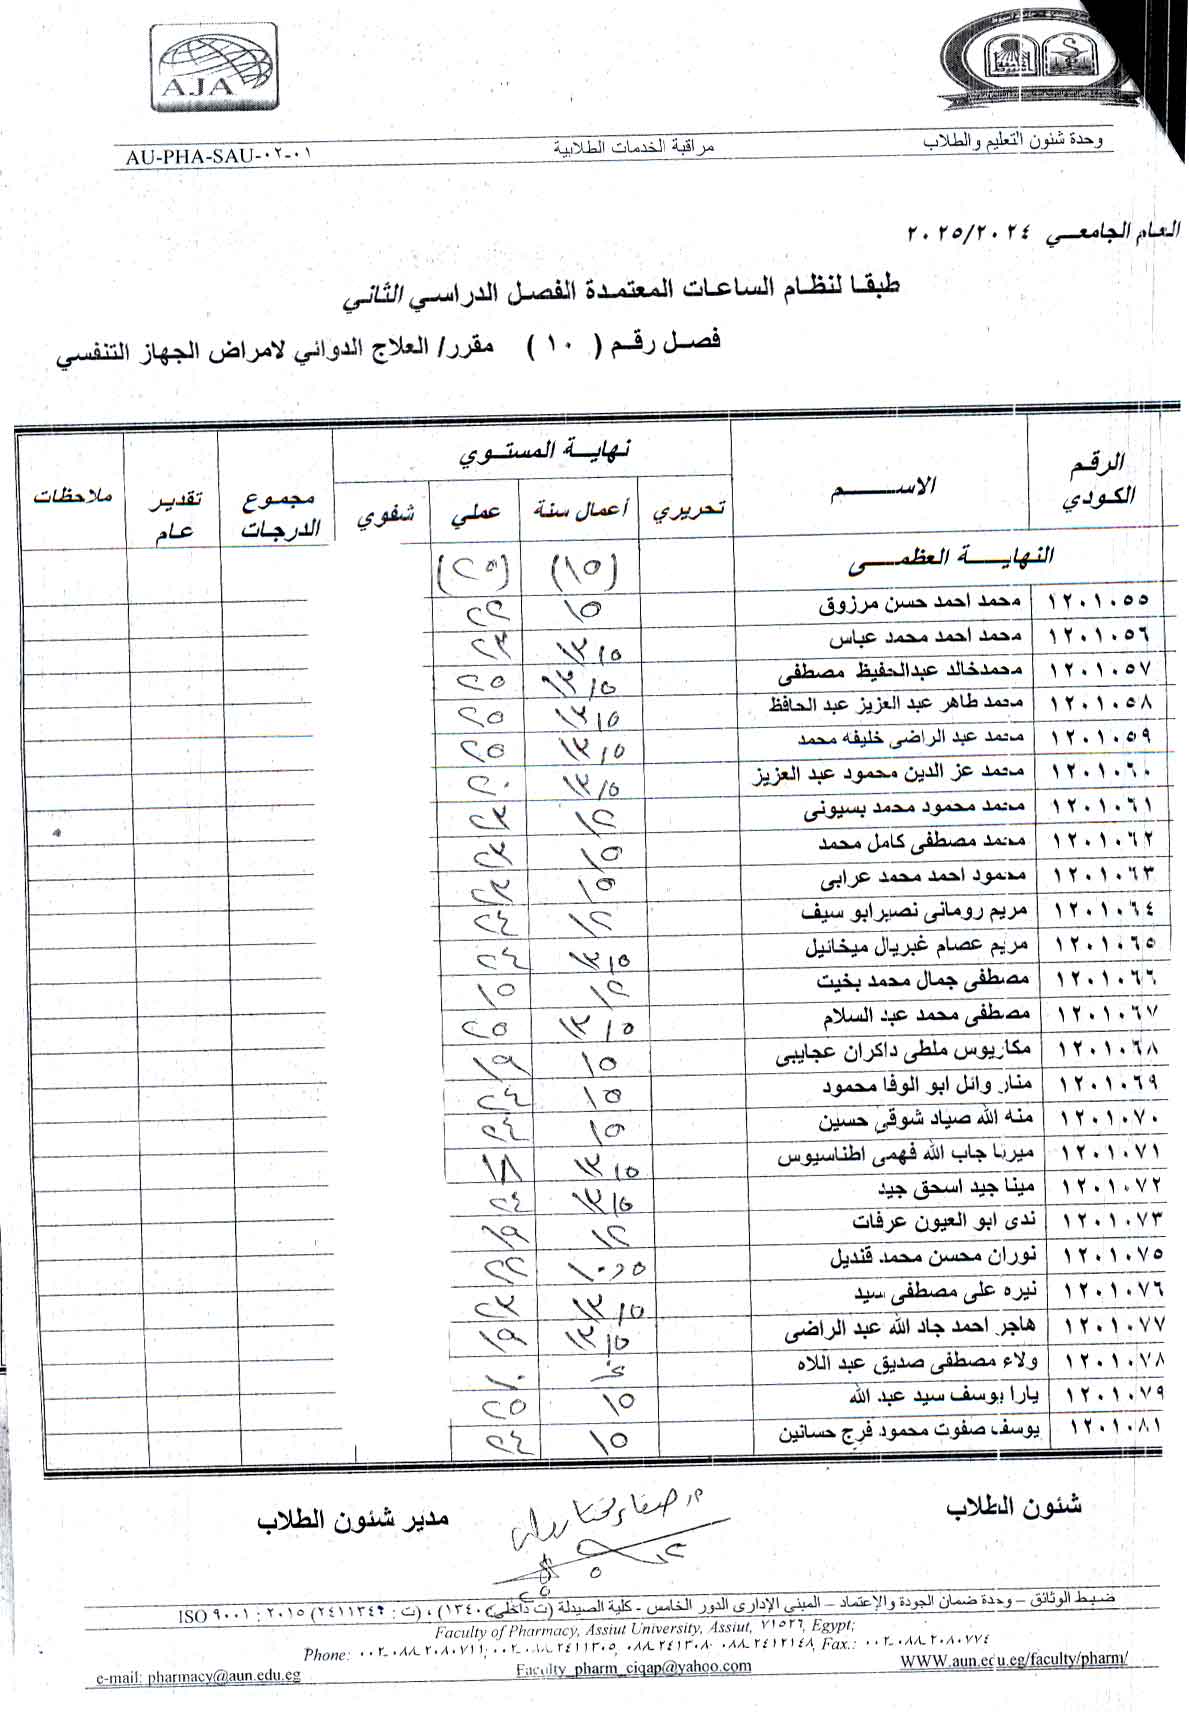 AJA
وحدة شئون التعليم والطلاب مراقبة الخدمات الطلابية AU-PHA-SAU-٠٢-٠١
العام الجامعي ٢٠٢٥/٢٠٢٤
طبقا لنظام الساعات المعتمدة الفصل الدراسي الثاني
فصل رقم ( ١٠ ) مقرر/ العلاج الدوائي لامراض الجهاز التنفسي
الرقم الكودي الاسم نهاية المستوي مجموع الدرجات تقدير عام ملاحظات
تحريري أعمال سنة عملي شفوي
النهاية العظمى (١٥) (٢٥)
١٢٠١٠٥٥ محمد احمد حسن مرزوق ١٥ ٢٢
١٢٠١٠٥٦ محمد احمد محمد عباس ١٣/٥ ٢٣
١٢٠١٠٥٧ محمدخالد عبدالحفيظ مصطفى ١٣/٥ ٢٥
١٢٠١٠٥٨ محمد طاهر عبد العزيز عبد الحافظ ١٣/٥ ٢٥
١٢٠١٠٥٩ محمد عبد الراضى خليفه محمد ١٣/٥ ٢٥
١٢٠١٠٦٠ محمد عز الدين محمود عبد العزيز ١٣/٥ ٢٠
١٢٠١٠٦١ محمد محمود محمد بسيونى ١٢ ٢٣
١٢٠١٠٦٢ محمد مصطفى كامل محمد ١٥ ٢٣
١٢٠١٠٦٣ محمود احمد محمد عرابى ١٥ ٢٣
١٢٠١٠٦٤ مريم رومانى نصيرابو سيف ١٢ ٢٤
١٢٠١٠٦٥ مريم عصام غبريال ميخائيل ١٣/٥ ٢٤
١٢٠١٠٦٦ مصطفى جمال محمد بخيت ١٢ ١٥
١٢٠١٠٦٧ مصطفى محمد عبد السلام ١٣/٥ ٢٥
١٢٠١٠٦٨ مكاريوس ملطى داكران عجايبى ١٥ ١٩
١٢٠١٠٦٩ منار وائل ابو الوفا محمود ١٥ ٢٤
١٢٠١٠٧٠ منه الله صياد شوقى حسين ١٥ ٢٤
١٢٠١٠٧١ ميرنا جاب الله فهمى اطناسيوس ١٣/٥ ١٨
١٢٠١٠٧٢ مينا جيد اسحق جيد ١٣/٥ ٢٤
١٢٠١٠٧٣ ندى ابو العيون عرفات ١٢ ١٩
١٢٠١٠٧٥ نوران محسن محمد قنديل ١٠٫٥ ٢٢
١٢٠١٠٧٦ نيره على مصطفى سيد ١٣/٥ ٢٣
١٢٠١٠٧٧ هاجر احمد جاد الله عبد الراضى ١٣/٥ ١٩
١٢٠١٠٧٨ ولاء مصطفى صديق عبد اللاه غ ١٠
١٢٠١٠٧٩ يارا يوسف سيد عبد الله ١٥ ٢٥
١٢٠١٠٨١ يوسف صفوت محمود فرج حسانين ١٥ ٢٤
شئون الطلاب مدير شئون الطلاب
ضبط الوثائق – وحدة ضمان الجودة والإعتماد – المبنى الإدارى الدور الخامس - كلية الصيدلة (ت داخلي: ١٣٤٠) ، (ت : ٢٤١١٣٤٩) ISO ٩٠٠١ : ٢٠١٥
Faculty of Pharmacy, Assiut University, Assiut, ٧١٥٢٦, Egypt;
Phone: ٠٠٢-٠٨٨-٢٠٨٠٧١١; ٠٠٢-٠٨٨-٢٤١١٣٠٥, ٠٨٨-٢٤١٣٠٨٠ ٠٨٨-٢٤١٢١٤٨, Fax.: ٠٠٢-٠٨٨-٢٠٨٠٧٧٤
e-mail: pharmacy@aun.edu.eg Faculty_pharm_ciqap@yahoo.com WWW.aun.edu.eg/faculty/pharm/